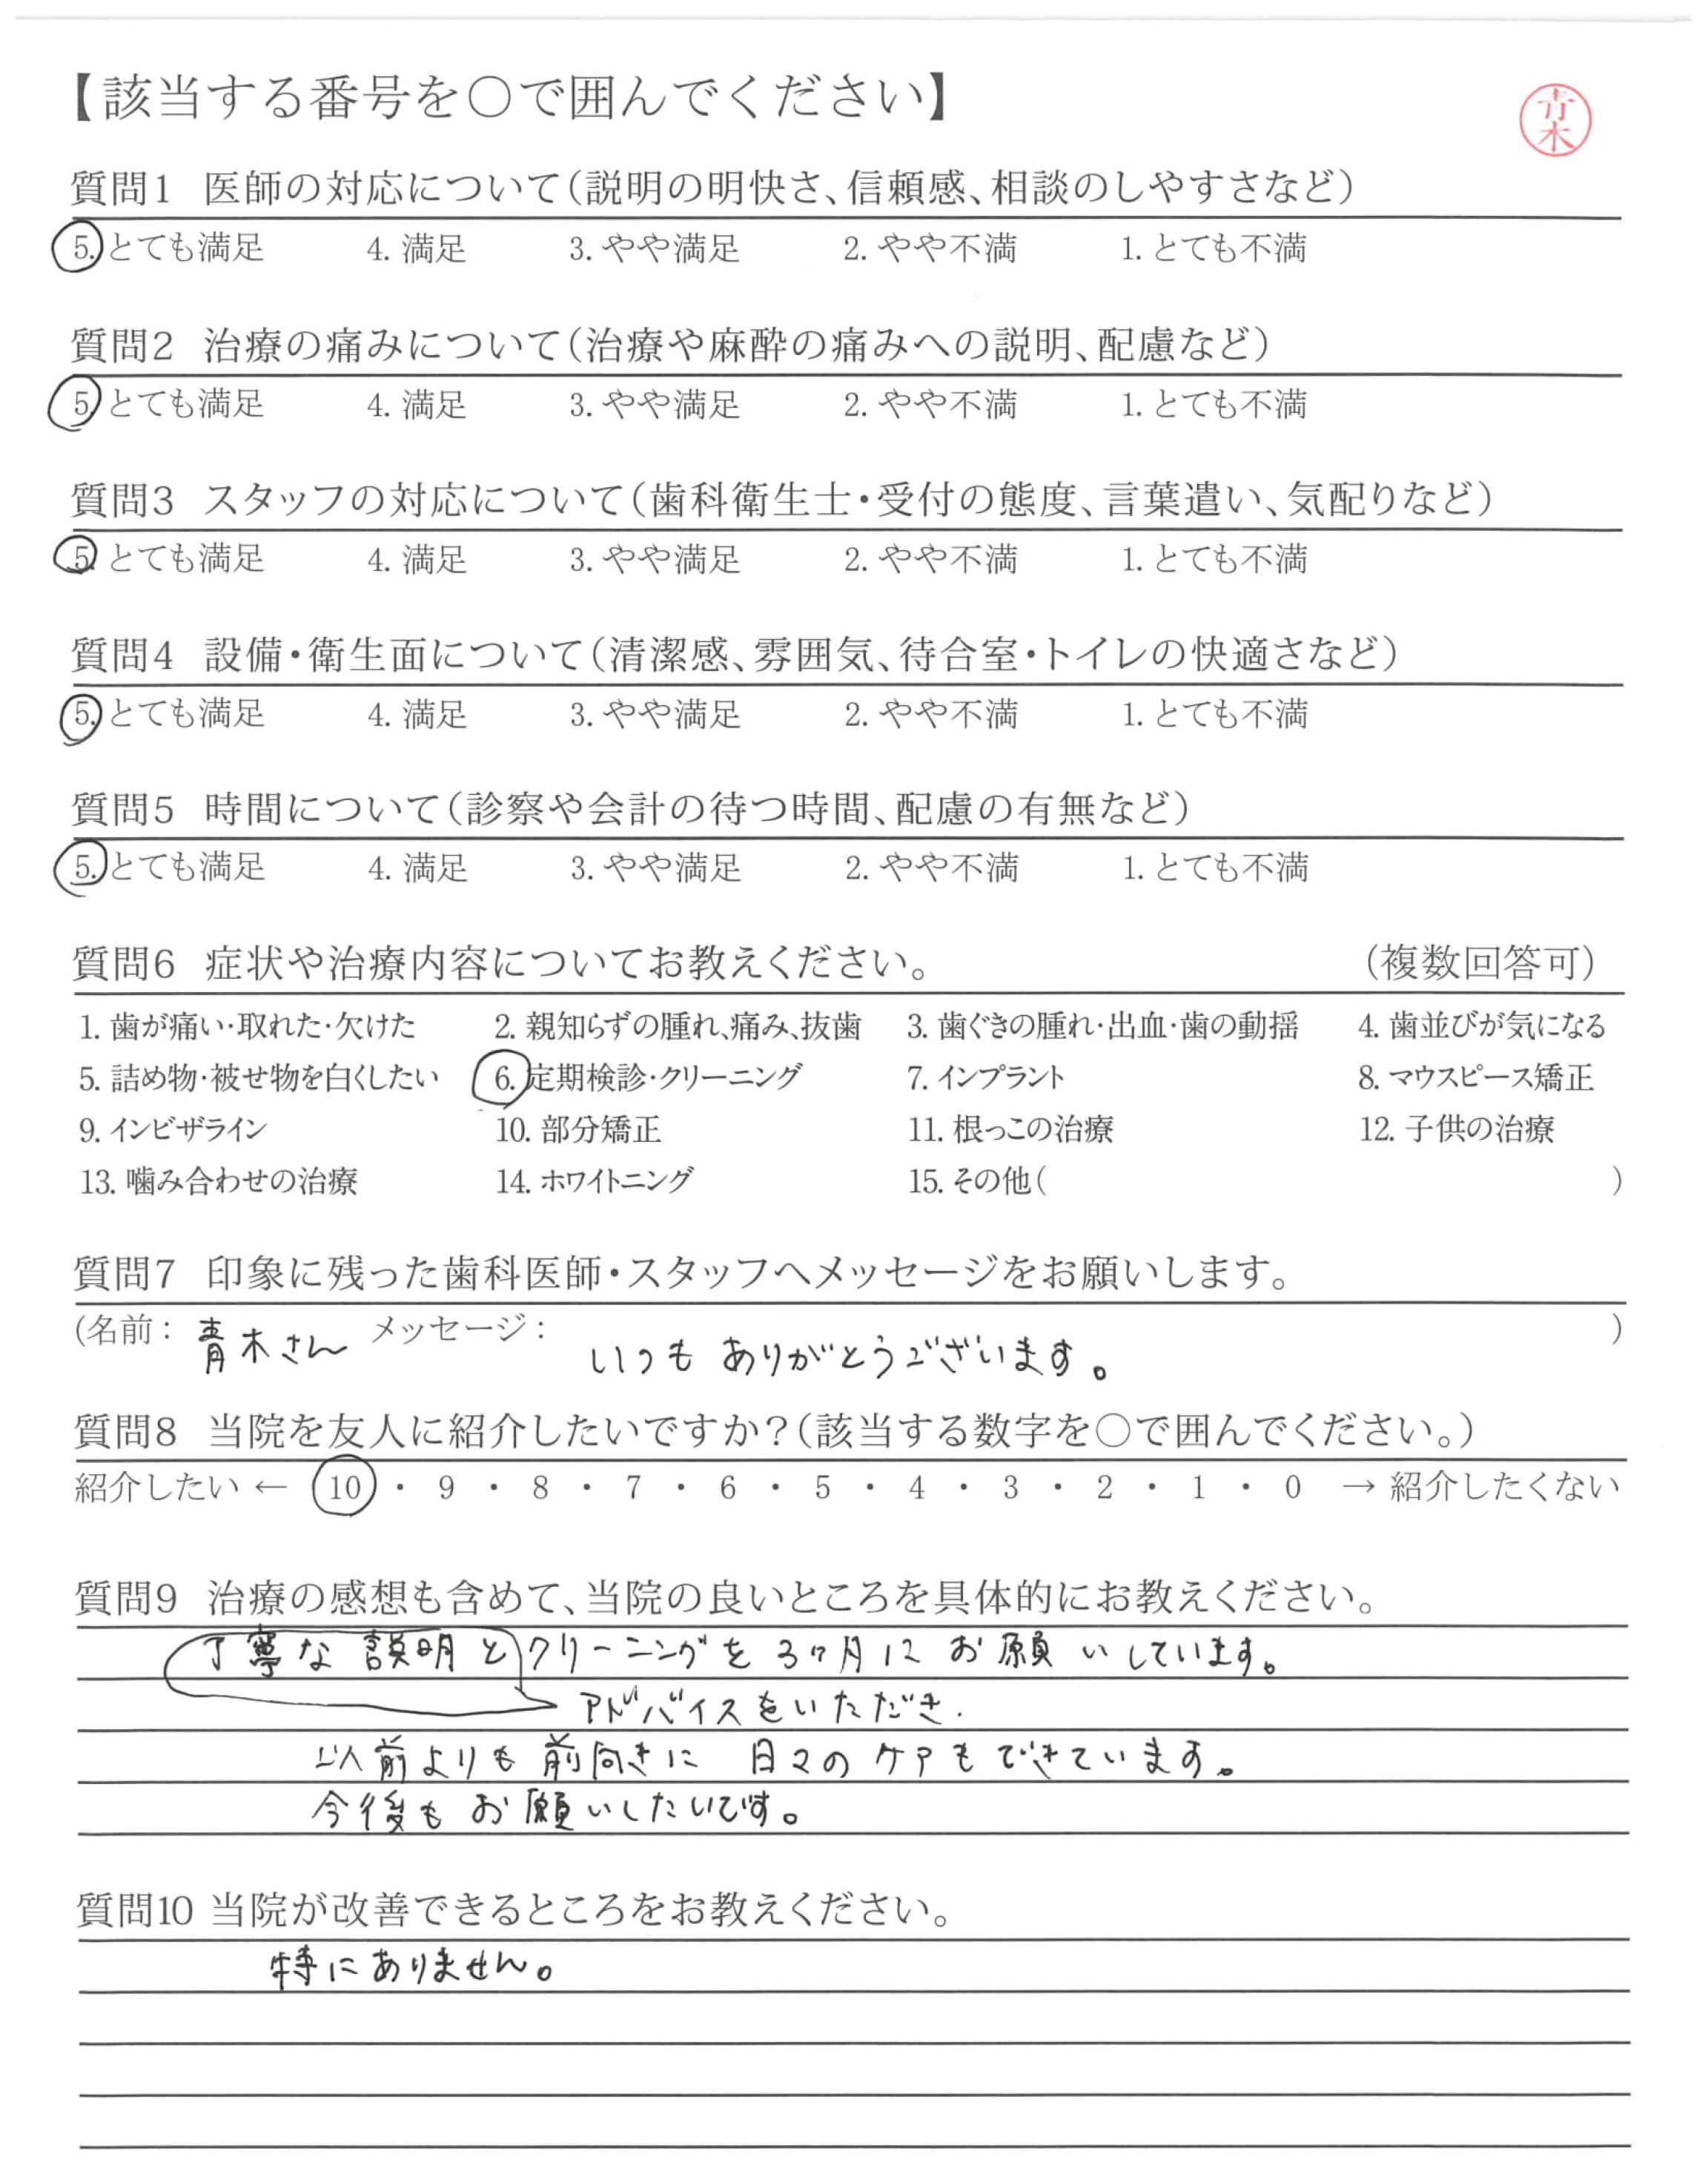 【該当する番号を○で囲んでください】
青木
質問1 医師の対応について(説明の明快さ、信頼感、相談のしやすさなど)
5. とても満足 4. 満足 3. やや満足 2. やや不満 1. とても不満
質問2 治療の痛みについて(治療や麻酔の痛みへの説明、配慮など)
5. とても満足 4. 満足 3. やや満足 2. やや不満 1. とても不満
質問3 スタッフの対応について(歯科衛生士・受付の態度、言葉遣い、気配りなど)
5. とても満足 4. 満足 3. やや満足 2. やや不満 1. とても不満
質問4 設備・衛生面について(清潔感、雰囲気、待合室・トイレの快適さなど)
5. とても満足 4. 満足 3. やや満足 2. やや不満 1. とても不満
質問5 時間について(診察や会計の待つ時間、配慮の有無など)
5. とても満足 4. 満足 3. やや満足 2. やや不満 1. とても不満
質問6 症状や治療内容についてお教えください。 (複数回答可)
1. 歯が痛い・取れた・欠けた 2. 親知らずの腫れ、痛み、抜歯 3. 歯ぐきの腫れ・出血・歯の動揺 4. 歯並びが気になる
5. 詰め物・被せ物を白くしたい 6. 定期検診・クリーニング 7. インプラント 8. マウスピース矯正
9. インビザライン 10. 部分矯正 11. 根っこの治療 12. 子供の治療
13. 噛み合わせの治療 14. ホワイトニング 15. その他( )
質問7 印象に残った歯科医師・スタッフへメッセージをお願いします。
(名前: 青木さん メッセージ: いつもありがとうございます。 )
質問8 当院を友人に紹介したいですか?(該当する数字を○で囲んでください。)
紹介したい ← 10 ・ 9 ・ 8 ・ 7 ・ 6 ・ 5 ・ 4 ・ 3 ・ 2 ・ 1 ・ 0 → 紹介したくない
質問9 治療の感想も含めて、当院の良いところを具体的にお教えください。
丁寧な説明と クリーニングを3ヶ月に お願いしています。
アドバイスをいただき.
以前よりも前向きに 日々のケアもできています。
今後も お願いしたいです。
質問10 当院が改善できるところをお教えください。
特にありません。